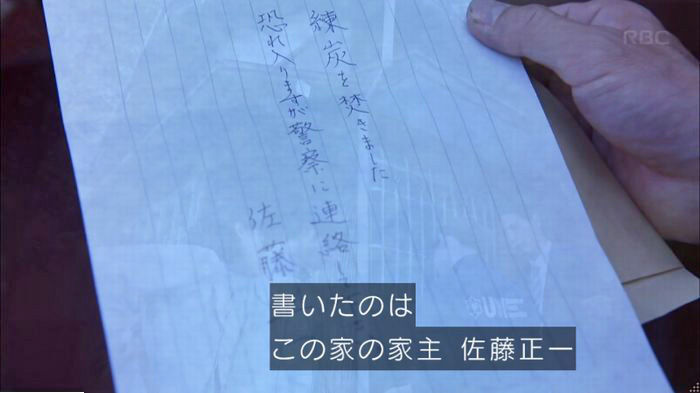 RBC
練炭を焚きました
恐れ入りますが警察に連絡し
佐藤
書いたのは
この家の家主 佐藤正一